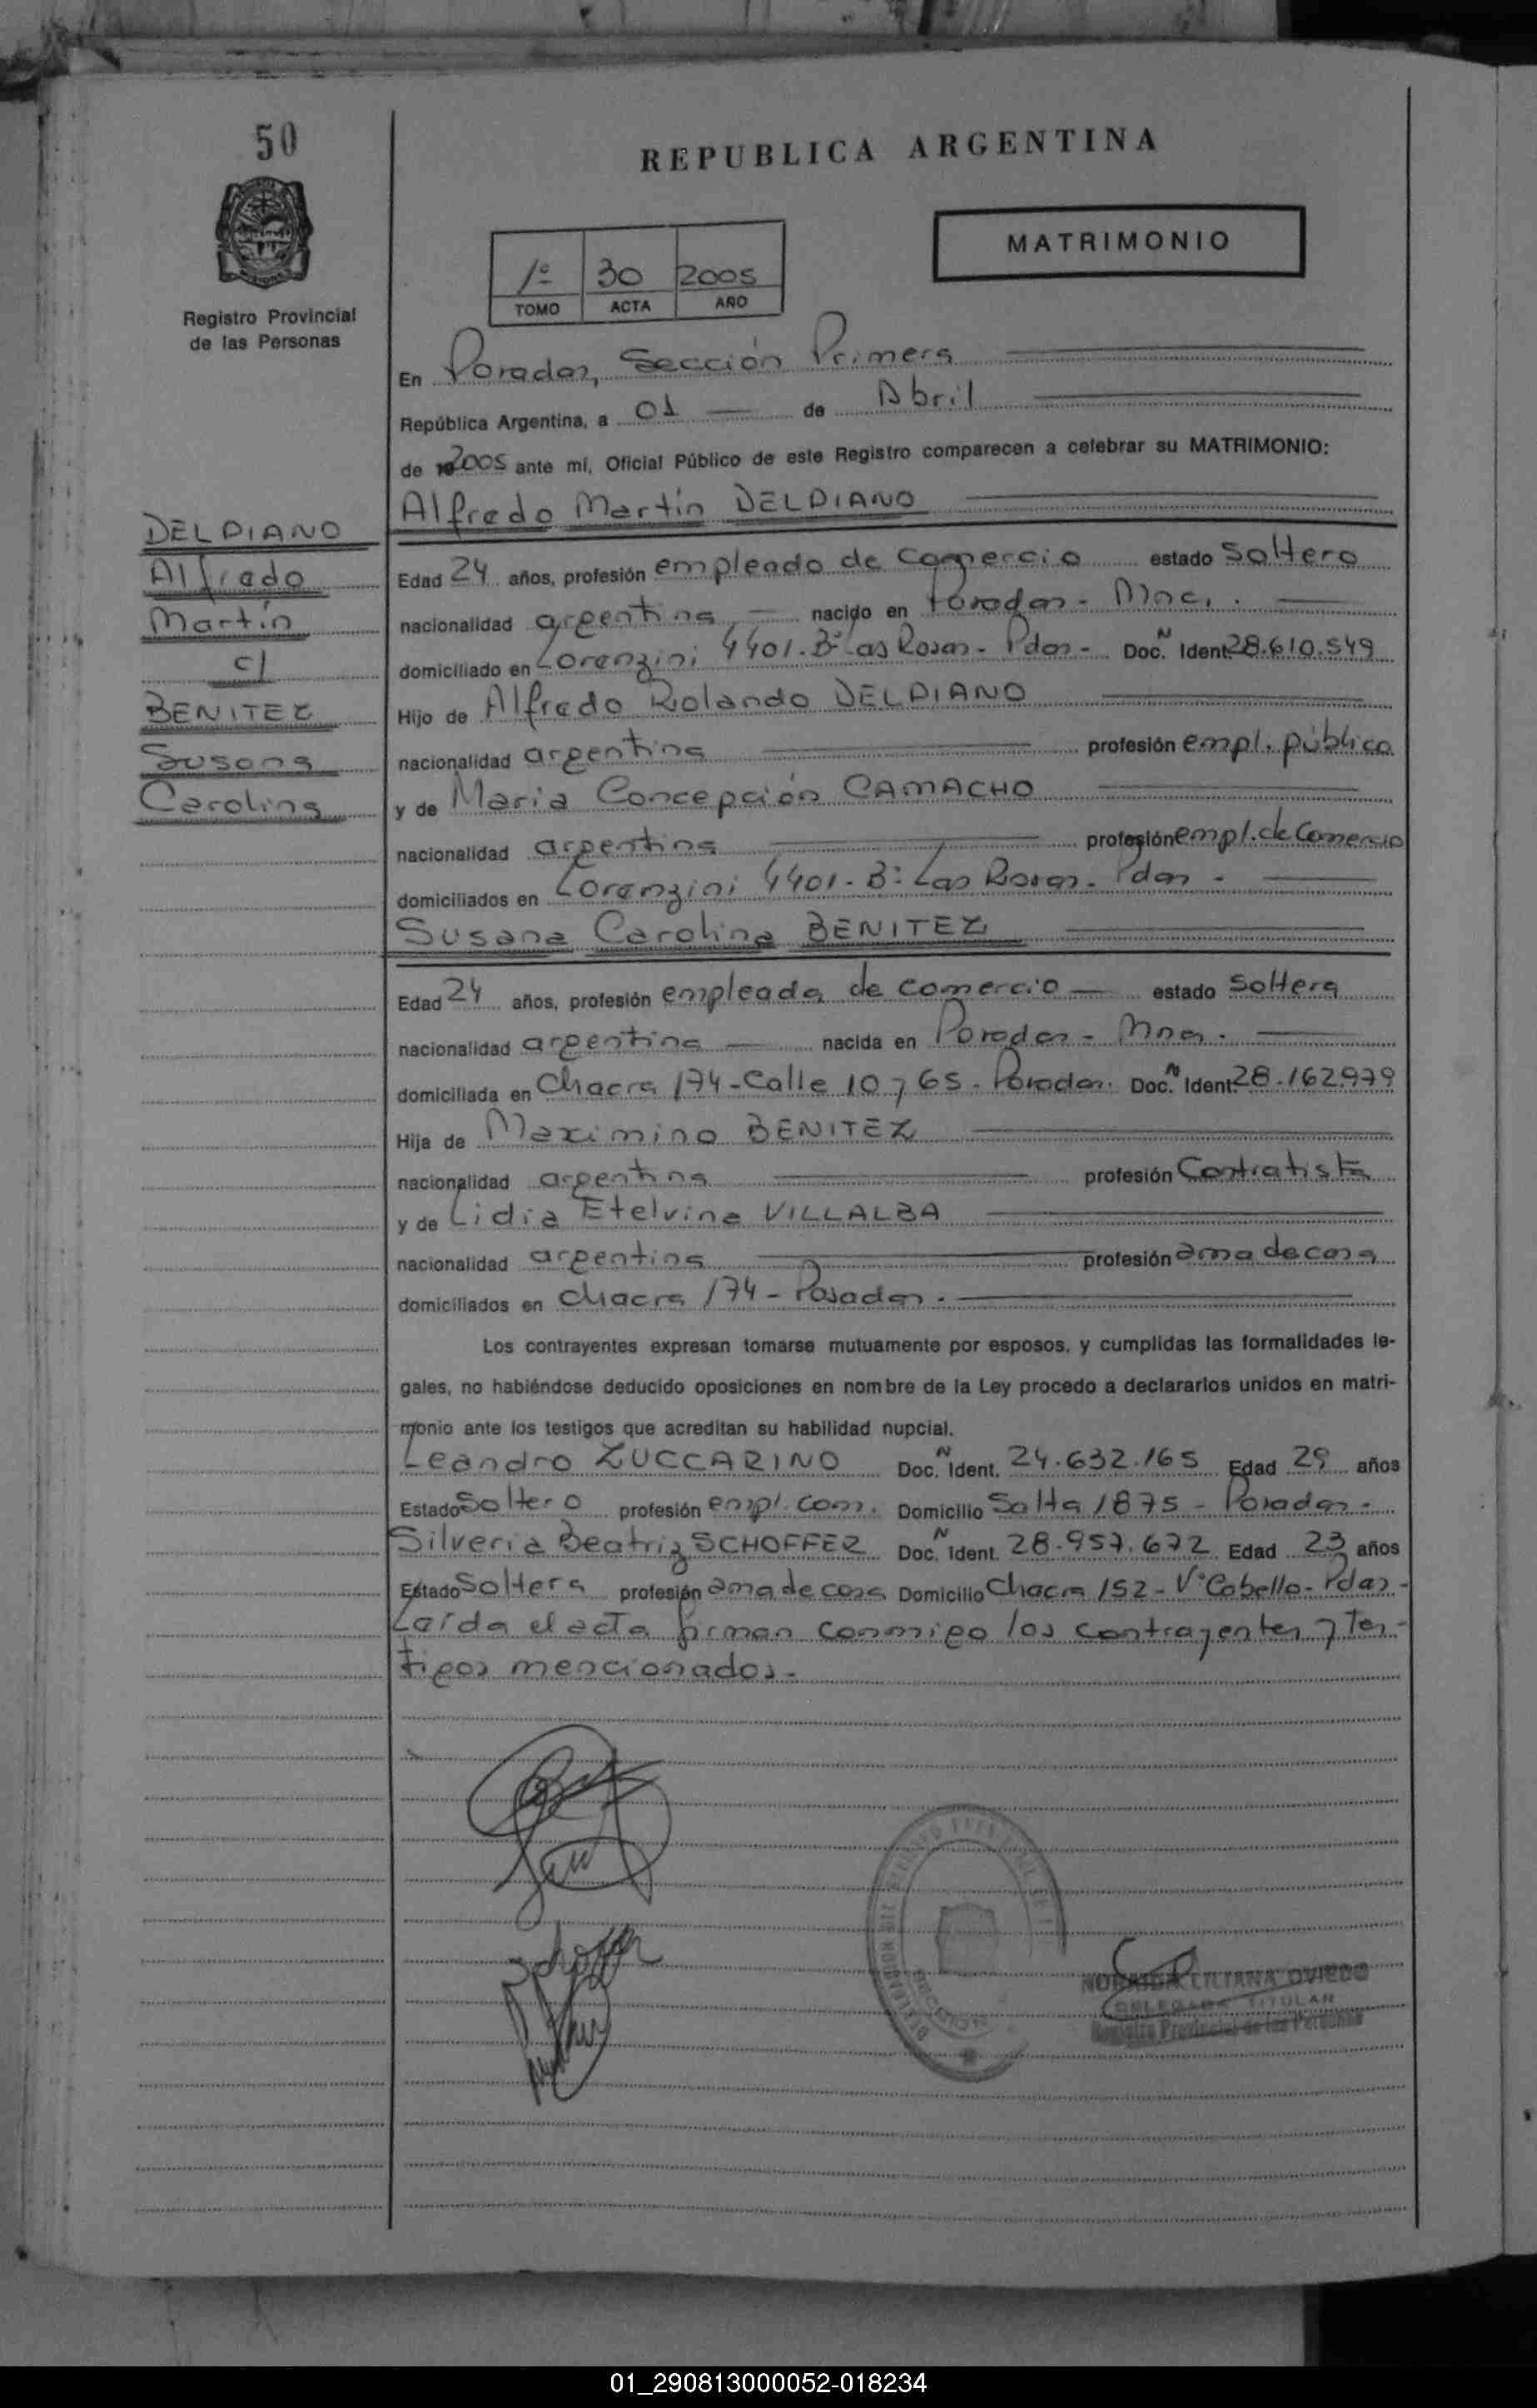 50
REPUBLICA ARGENTINA
MATRIMONIO
1º 30 2005
TOMO ACTA AÑO
Registro Provincial
de las Personas
En Posadas, Sección Primera
República Argentina, a 01 de Abril
de 2005 ante mí, Oficial Público de este Registro comparecen a celebrar su MATRIMONIO:
Alfredo Martín DELPIANO
DELPIANO
Alfredo
Martín
c/
BENITEZ
Susana
Carolina
Edad 24 años, profesión empleado de comercio estado soltero
nacionalidad argentina nacido en Posadas - Mnes.
domiciliado en Lorenzini 4401. Bº Las Rosas - Pdas - Doc. N Ident. 28.610.549
Hijo de Alfredo Rolando DELPIANO
nacionalidad argentina profesión empl. público
y de Maria Concepción CAMACHO
nacionalidad argentina profesión empl. de Comercio
domiciliados en Lorenzini 4401 - Bº Las Rosas - Pdas -
Susana Carolina BENITEZ
Edad 24 años, profesión empleada de comercio estado soltera
nacionalidad argentina nacida en Posadas - Mnes.
domiciliada en Chacra 174 - Calle 10 y 65 - Posadas. Doc. N Ident. 28.162.979
Hija de Maximino BENITEZ
nacionalidad argentina profesión Contratista
y de Lidia Etelvina VILLALBA
nacionalidad argentina profesión ama de casa
domiciliados en Chacra 174 - Posadas.
Los contrayentes expresan tomarse mutuamente por esposos, y cumplidas las formalidades le-
gales, no habiéndose deducido oposiciones en nombre de la Ley procedo a declararlos unidos en matri-
monio ante los testigos que acreditan su habilidad nupcial.
Leandro ZUCCARINO Doc. N Ident. 24.632.165 Edad 29 años
Estado Soltero profesión empl. com. Domicilio Salta 1875 - Posadas -
Silveria Beatriz SCHOFFER Doc. N Ident. 28.957.672 Edad 23 años
Estado Soltera profesión ama de casa Domicilio Chacra 152 - Vº Cabello - Pdas -
Leída el acta firman conmigo los contrayentes y tes-
tigos mencionados -
LILIANA OVIEDO
DELEGADA TITULAR
Registro Provincial de las Personas
01_290813000052-018234